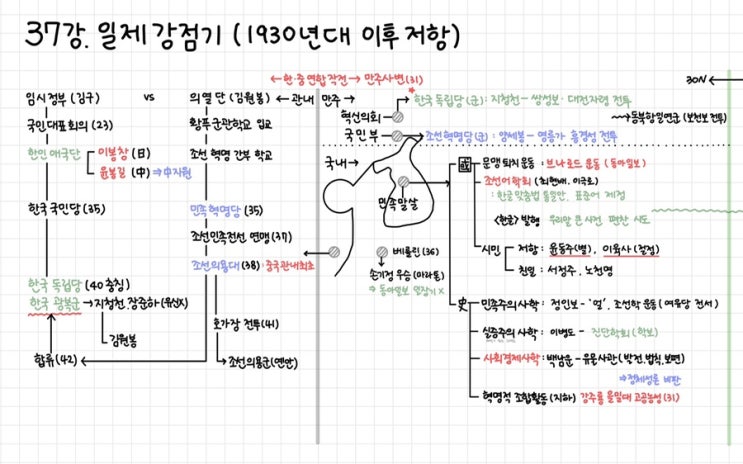 37강. 일제강점기 (1930년대 이후 저항)
←한·중 연합작전→ 만주사변(31)
30N ←
임시정부 (김구) vs 의열단 (김원봉) ← 관내 만주 →
국민대표회의 (23)
한인애국단 이봉창 (日)
윤봉길 (中) ⇒中지원
한국국민당 (35)
한국 독립당 (40충칭)
한국 광복군 → 지청천, 장준하(유산X)
김원봉
합류 (42)
황푸군관학교 입교
조선 혁명 간부 학교
민족혁명당 (35)
조선민족전선 연맹 (37)
조선의용대 (38) : 중국관내최초
호가장 전투 (41)
조선의용군(연안)
혁신의회 → 한국 독립당(군): 지청천 - 쌍성보·대전자령 전투
국민부 → 조선혁명당(군): 양세봉 - 영릉가 흥경성 전투
동북항일연군 (보천보 전투)
국내→
민족말살
베를린 (36)
손기정 우승 (마라톤)
⇒ 동아일보 일장기 X
國 문맹 퇴치 운동 : 브나로드 운동 (동아일보)
조선어 학회 (최현배, 이극로)
: 한글 맞춤법 통일안, 표준어 제정
<한글> 발행 우리말 큰 사전 편찬 시도
시민 저항 : 윤동주(별), 이육사 (절정)
친일 : 서정주, 노천명
史 민족주의 사학 : 정인보 - '얼', 조선학 운동 (여유당 전서)
실증주의 사학 : 이병도 - 진단학회 (학보)
사회경제사학 : 백남운 - 유물사관 (발전, 법칙, 보편)
⇒정체성론 비판
혁명적 조합활동 (지하) 강주룡 을밀대 고공농성 (31)